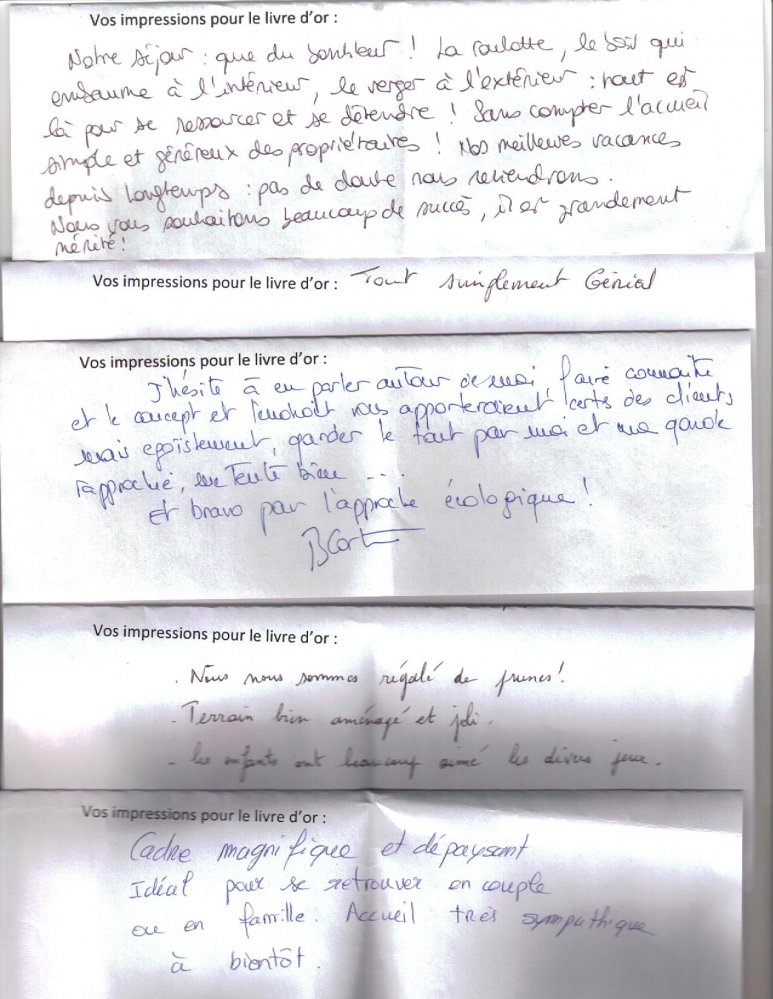 Vos impressions pour le livre d'or :
Notre séjour : que du bonheur ! La roulotte, le bois qui
embaume à l'intérieur, le verger à l'extérieur : tout est
là pour se ressourcer et se détendre ! Sans compter l'accueil
simple et généreux des propriétaires ! Nos meilleures vacances
depuis longtemps : pas de doute nous reviendrons.
Nous vous souhaitons beaucoup de succès, il est grandement
mérité !
Vos impressions pour le livre d'or : Tout simplement Génial
Vos impressions pour le livre d'or :
J'hésite à en parler autour de moi, faire connaître
et le concept et l'endroit vous apporteraient certes des clients
mais egoïstement, garder le tout par moi et ma garde
rapprochée, me tente bien ....
Et bravo par l'approche écologique !
Vos impressions pour le livre d'or :
. Nous nous sommes régalé de prunes !
. Terrain bien aménagé et joli.
- les enfants ont beaucoup aimé les divers jeux.
Vos impressions pour le livre d'or :
Cadre magnifique et dépaysant
Idéal pour se retrouver en couple
ou en famille. Accueil très sympathique
à bientôt.